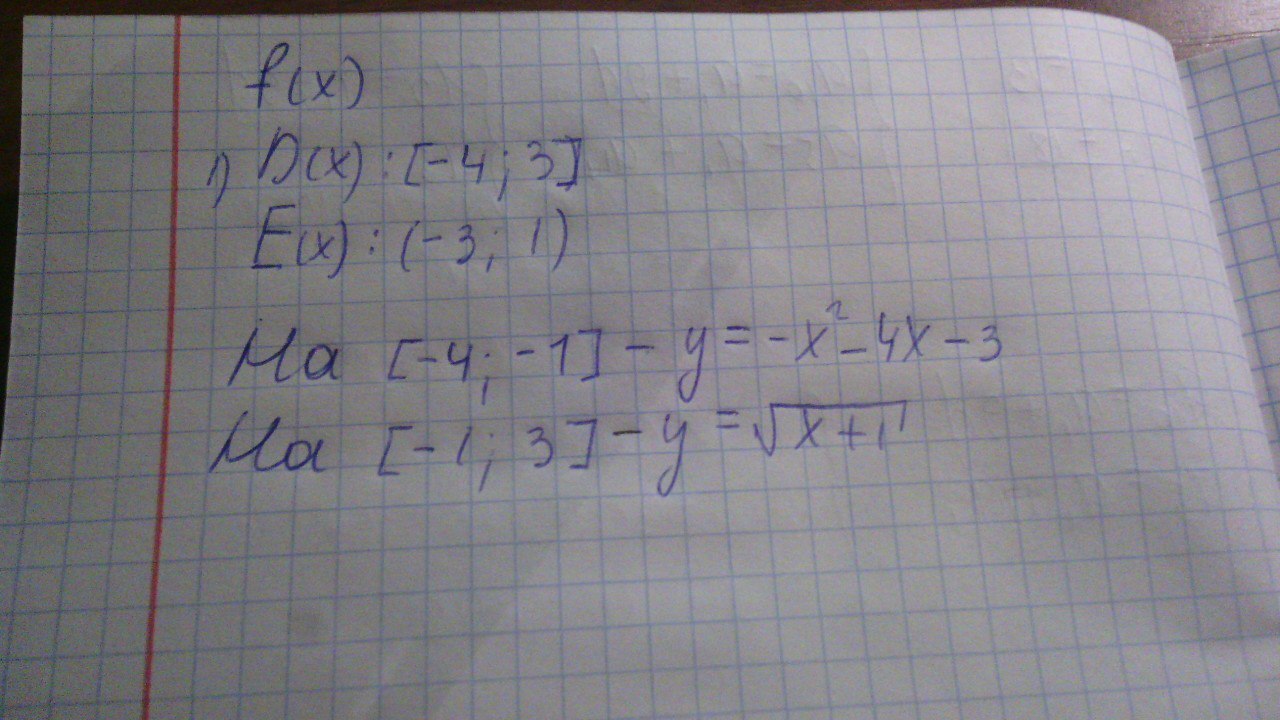 f(x)
1) D(x) : [-4 ; 3]
E(x) : (-3 ; 1)
На [-4 ; -1] - y = -x² - 4x - 3
На [-1 ; 3] - y = √(x+1)